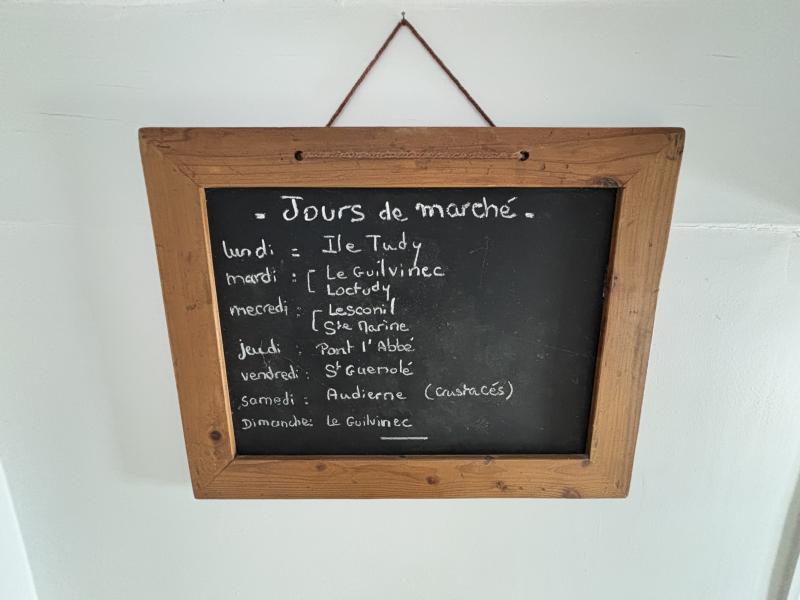 - Jours de marché -
lundi = Ile Tudy
mardi : [ Le Guilvinec
Loctudy
mecredi : [ Lesconil
Ste Marine
jeudi : Pont l'Abbé
vendredi : St Guenolé
samedi : Audierne (crustacés)
Dimanche: Le Guilvinec